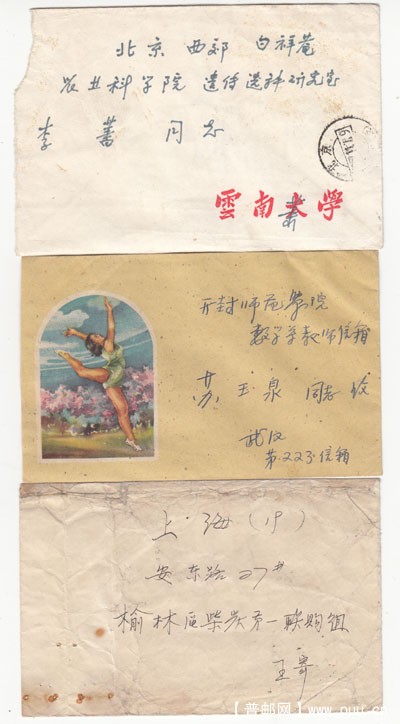 北京 西郊 白祥菴
农业科学院 遗传选种研究室
李 蕃 同志
北京
雲南大学
开封师范学院
数学系教师信箱
苏 玉 泉 同志 收
武汉
第223信箱
上海(19)
安东路27#
榆林区柴炭第一联购组
王寄
【普邮网】